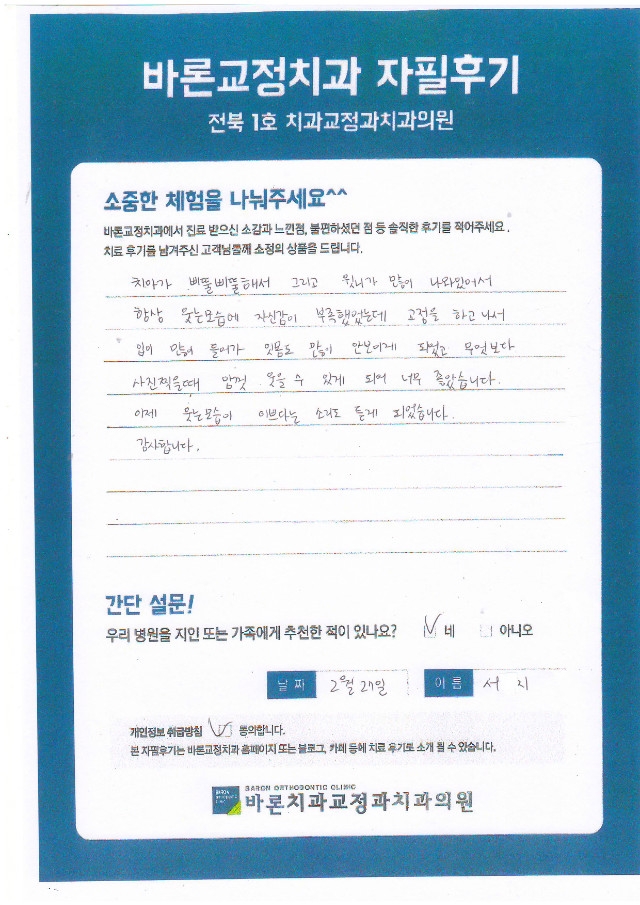 바론교정치과 자필후기
전북 1호 치과교정과치과의원
소중한 체험을 나눠주세요^^
바론교정치과에서 진료 받으신 소감과 느낀점, 불편하셨던 점 등 솔직한 후기를 적어주세요.
치료 후기를 남겨주신 고객님들께 소정의 상품을 드립니다.
치아가 삐뚤삐뚤해서 그리고 윗니가 많이 나와있어서
항상 웃는모습에 자신감이 부족했었는데 교정을 하고 나서
입이 많이 들어가 잇몸도 많이 안보이게 되었고 무엇보다
사진찍을때 맘껏 웃을 수 있게 되어 너무 좋았습니다.
이제 웃는모습이 이쁘다는 소리도 듣게 되었습니다.
감사합니다.
간단 설문!
우리 병원을 지인 또는 가족에게 추천한 적이 있나요? 네 아니오
날짜 2월 27일 이름 서 지
개인정보 취급방침 동의합니다.
본 자필후기는 바론교정치과 홈페이지 또는 블로그, 카페 등에 치료 후기로 소개 될 수 있습니다.
BARON ORTHODONTIC CLINIC
바론치과교정과치과의원